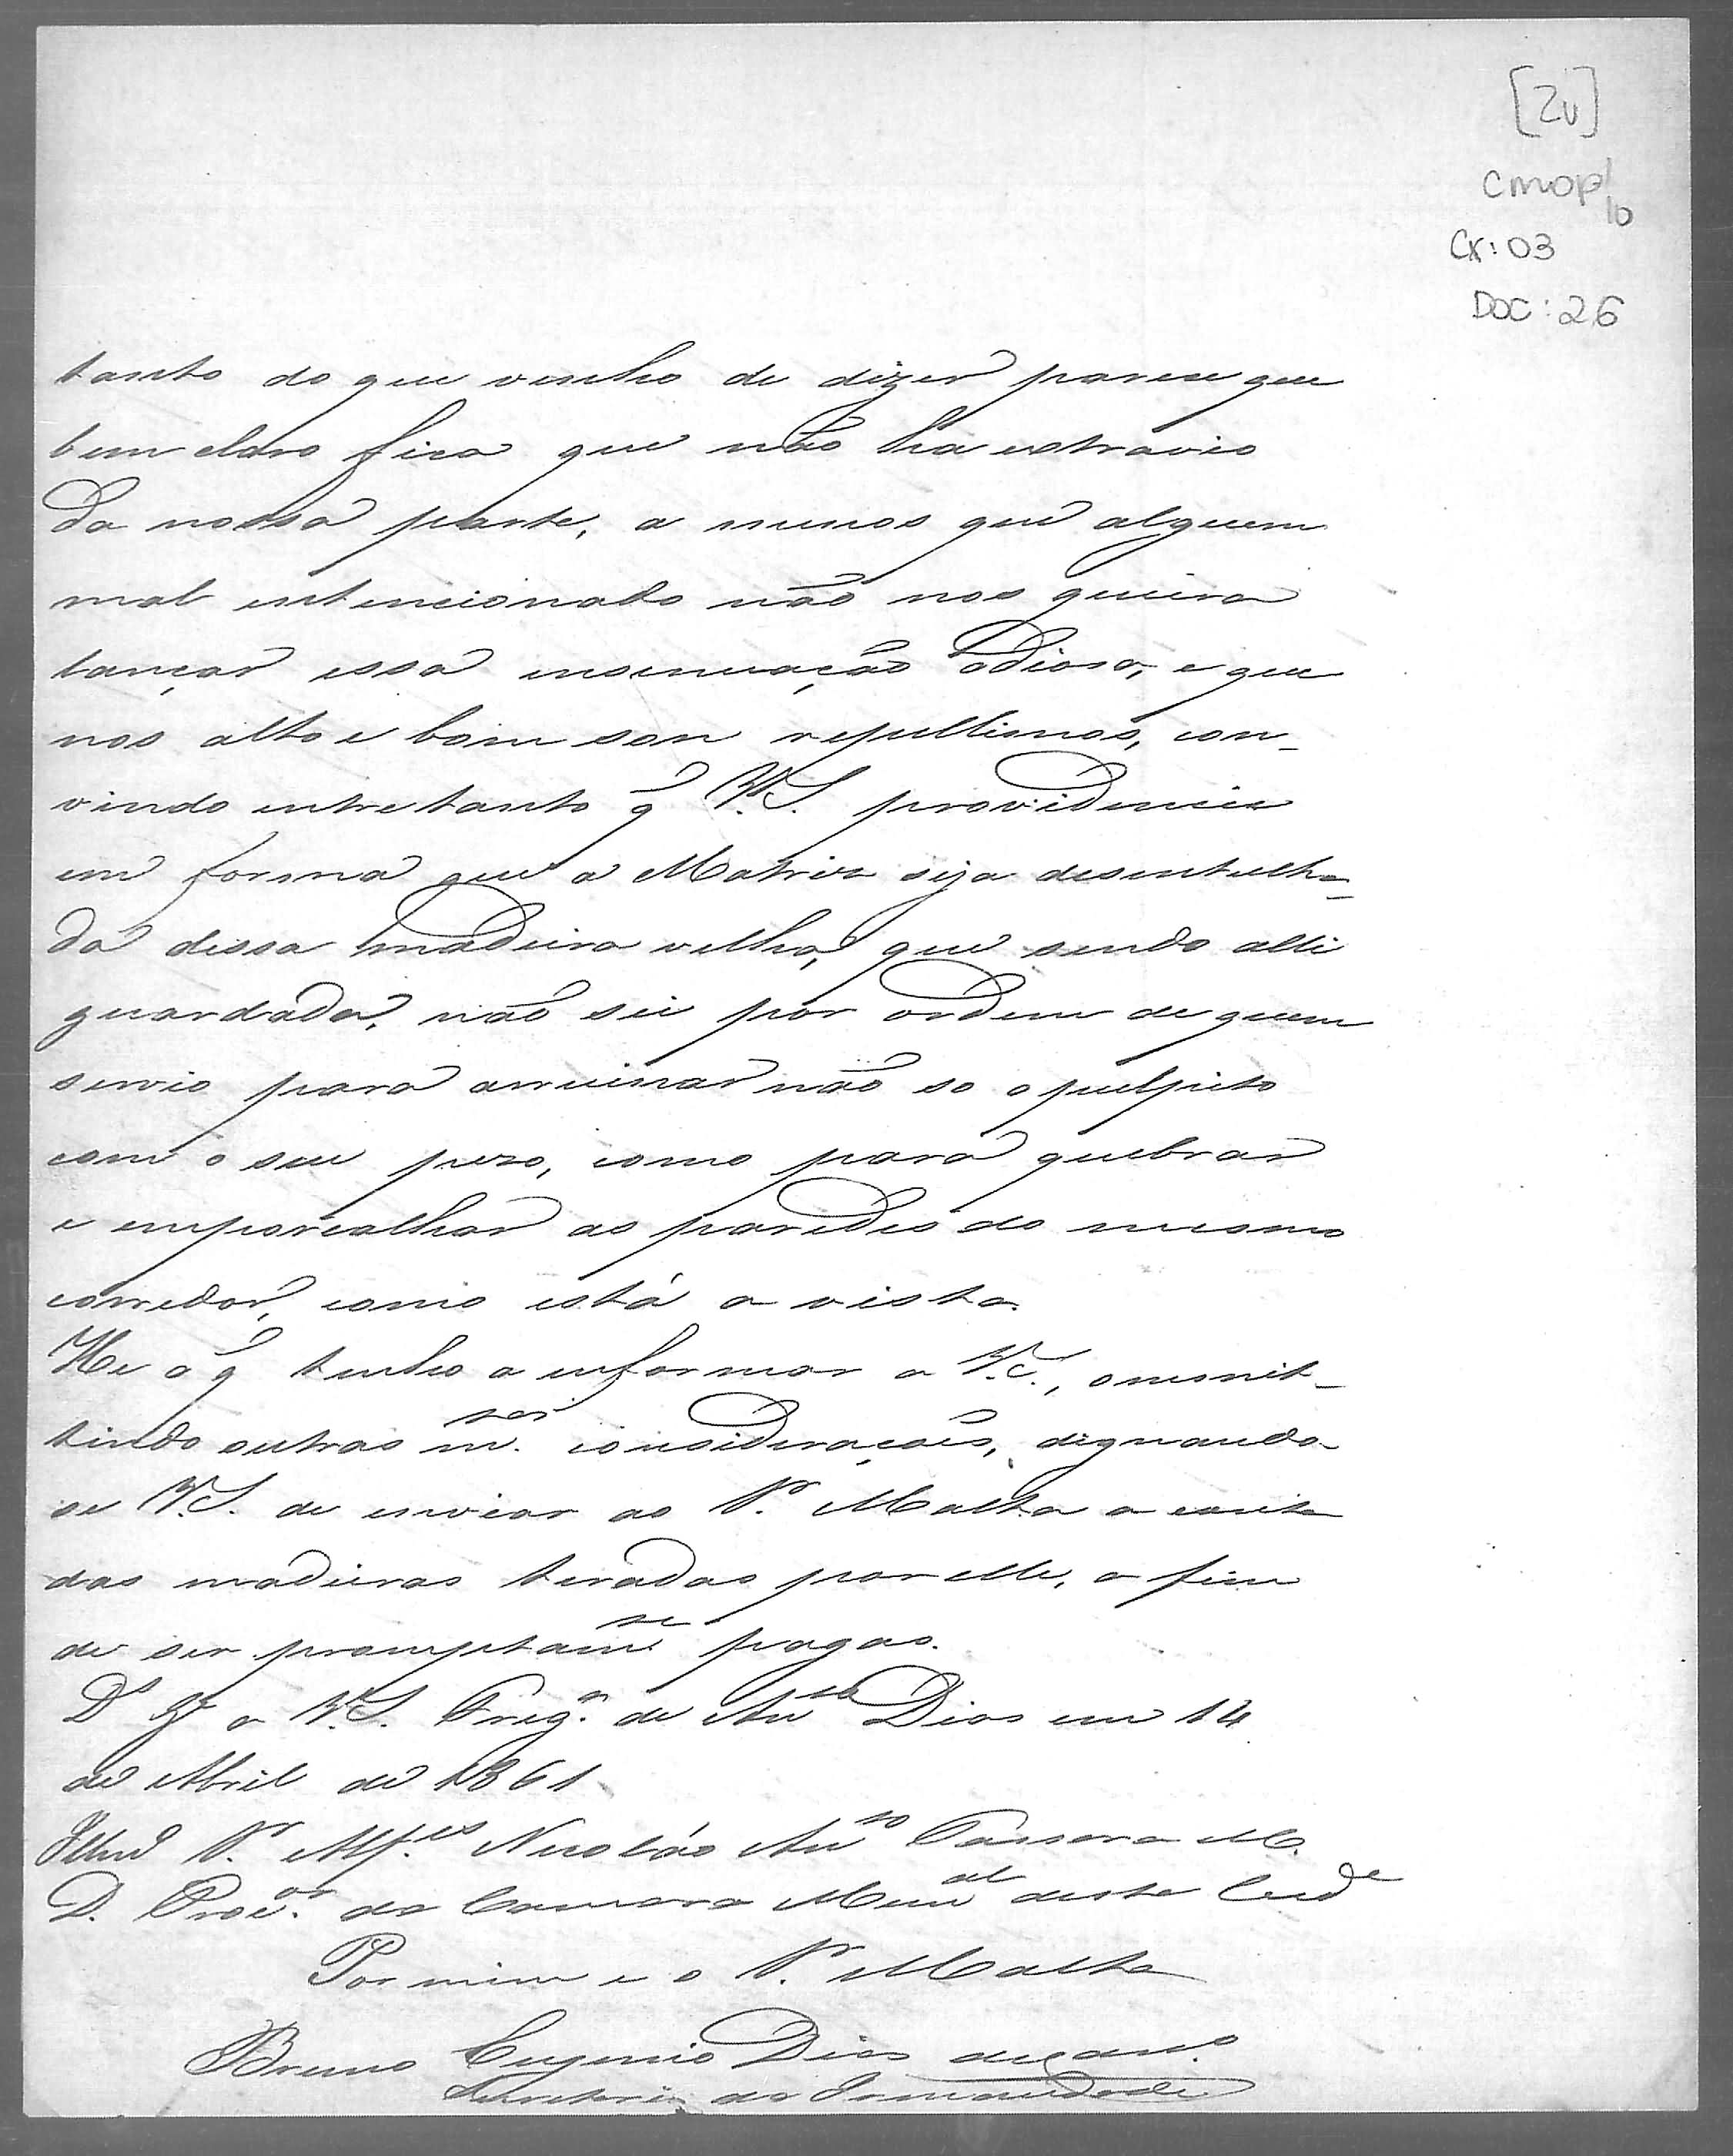 [2v]
CMOP/
10
CX: 03
DOC: 26
tanto do que venho de dizer parece que
bem claro fica que não ha extravio
da nossa parte, a menos que alguem
mal entencionado não nos queira
lançar essa insenuação odiosa, e que
nos alto e bom som repellimos, con-
vindo entretanto q̃ V.S. providencie
em forma que a Matriz seja desentulha-
da dessa madeira velha, que sendo alli
guardada, não sei por ordem de quem
servio para arruinar não so o pulpito
com o seu pezo, como para quebrar
e emporcalhar as paredes do mesmo
corredor, como está a vista.
He o q̃ tenho a informar a V.S., ommit-
tindo outras m.tas consideraçoẽs, dignando-
se V.S. de enviar ao S.r Malta a conta
das madeiras teradas por elle, a fim
de ser promptam.e pagas.
D.s G.e a V.S. Freg.a de An.to Dias em 14
de Abril de 1861
Illm.o S.r Alf.es Nicoláo An.to Tassara M.
D. Proc.or da Camara Mun.al desta Cid.e
Por mim e o S.r Malta
Bruno Eugenio Dias
Secretario da Irmandade